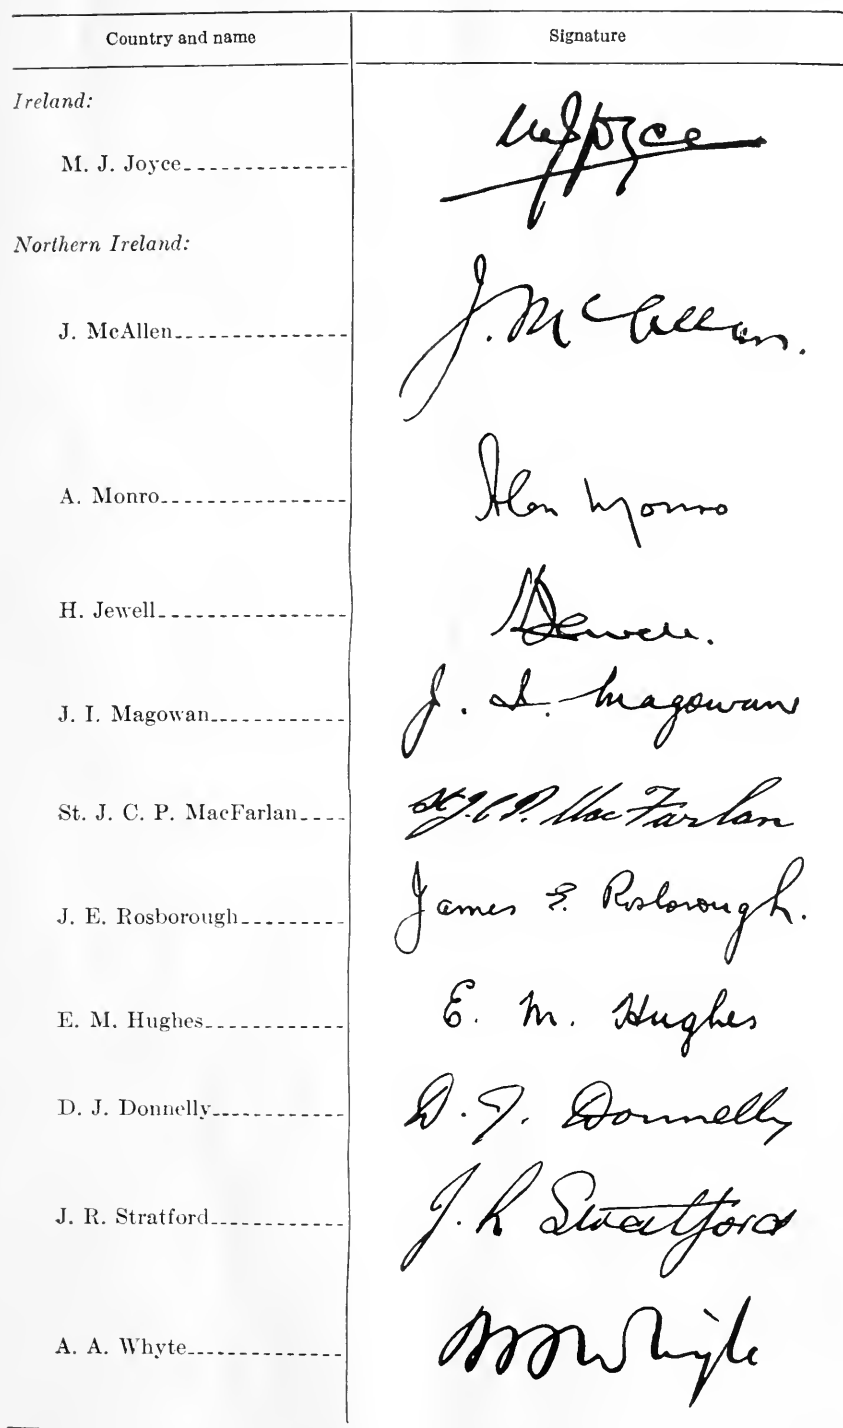 Country and name Signature
Ireland:
M. J. Joyce MJJoyce
Northern Ireland:
J. McAllen J. McAllen.
A. Monro Alan Monro
H. Jewell HJewell.
J. I. Magowan J. I. Magowan
St. J. C. P. MacFarlan St J. C P. MacFarlan
J. E. Rosborough James E. Rosborough.
E. M. Hughes E. M. Hughes
D. J. Donnelly D. J. Donnelly
J. R. Stratford J. R Stratford
A. A. Whyte AAWhyte